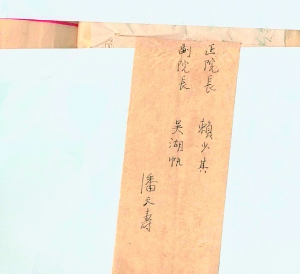 正院長　賴少其
副院長　吳湖帆
潘天壽